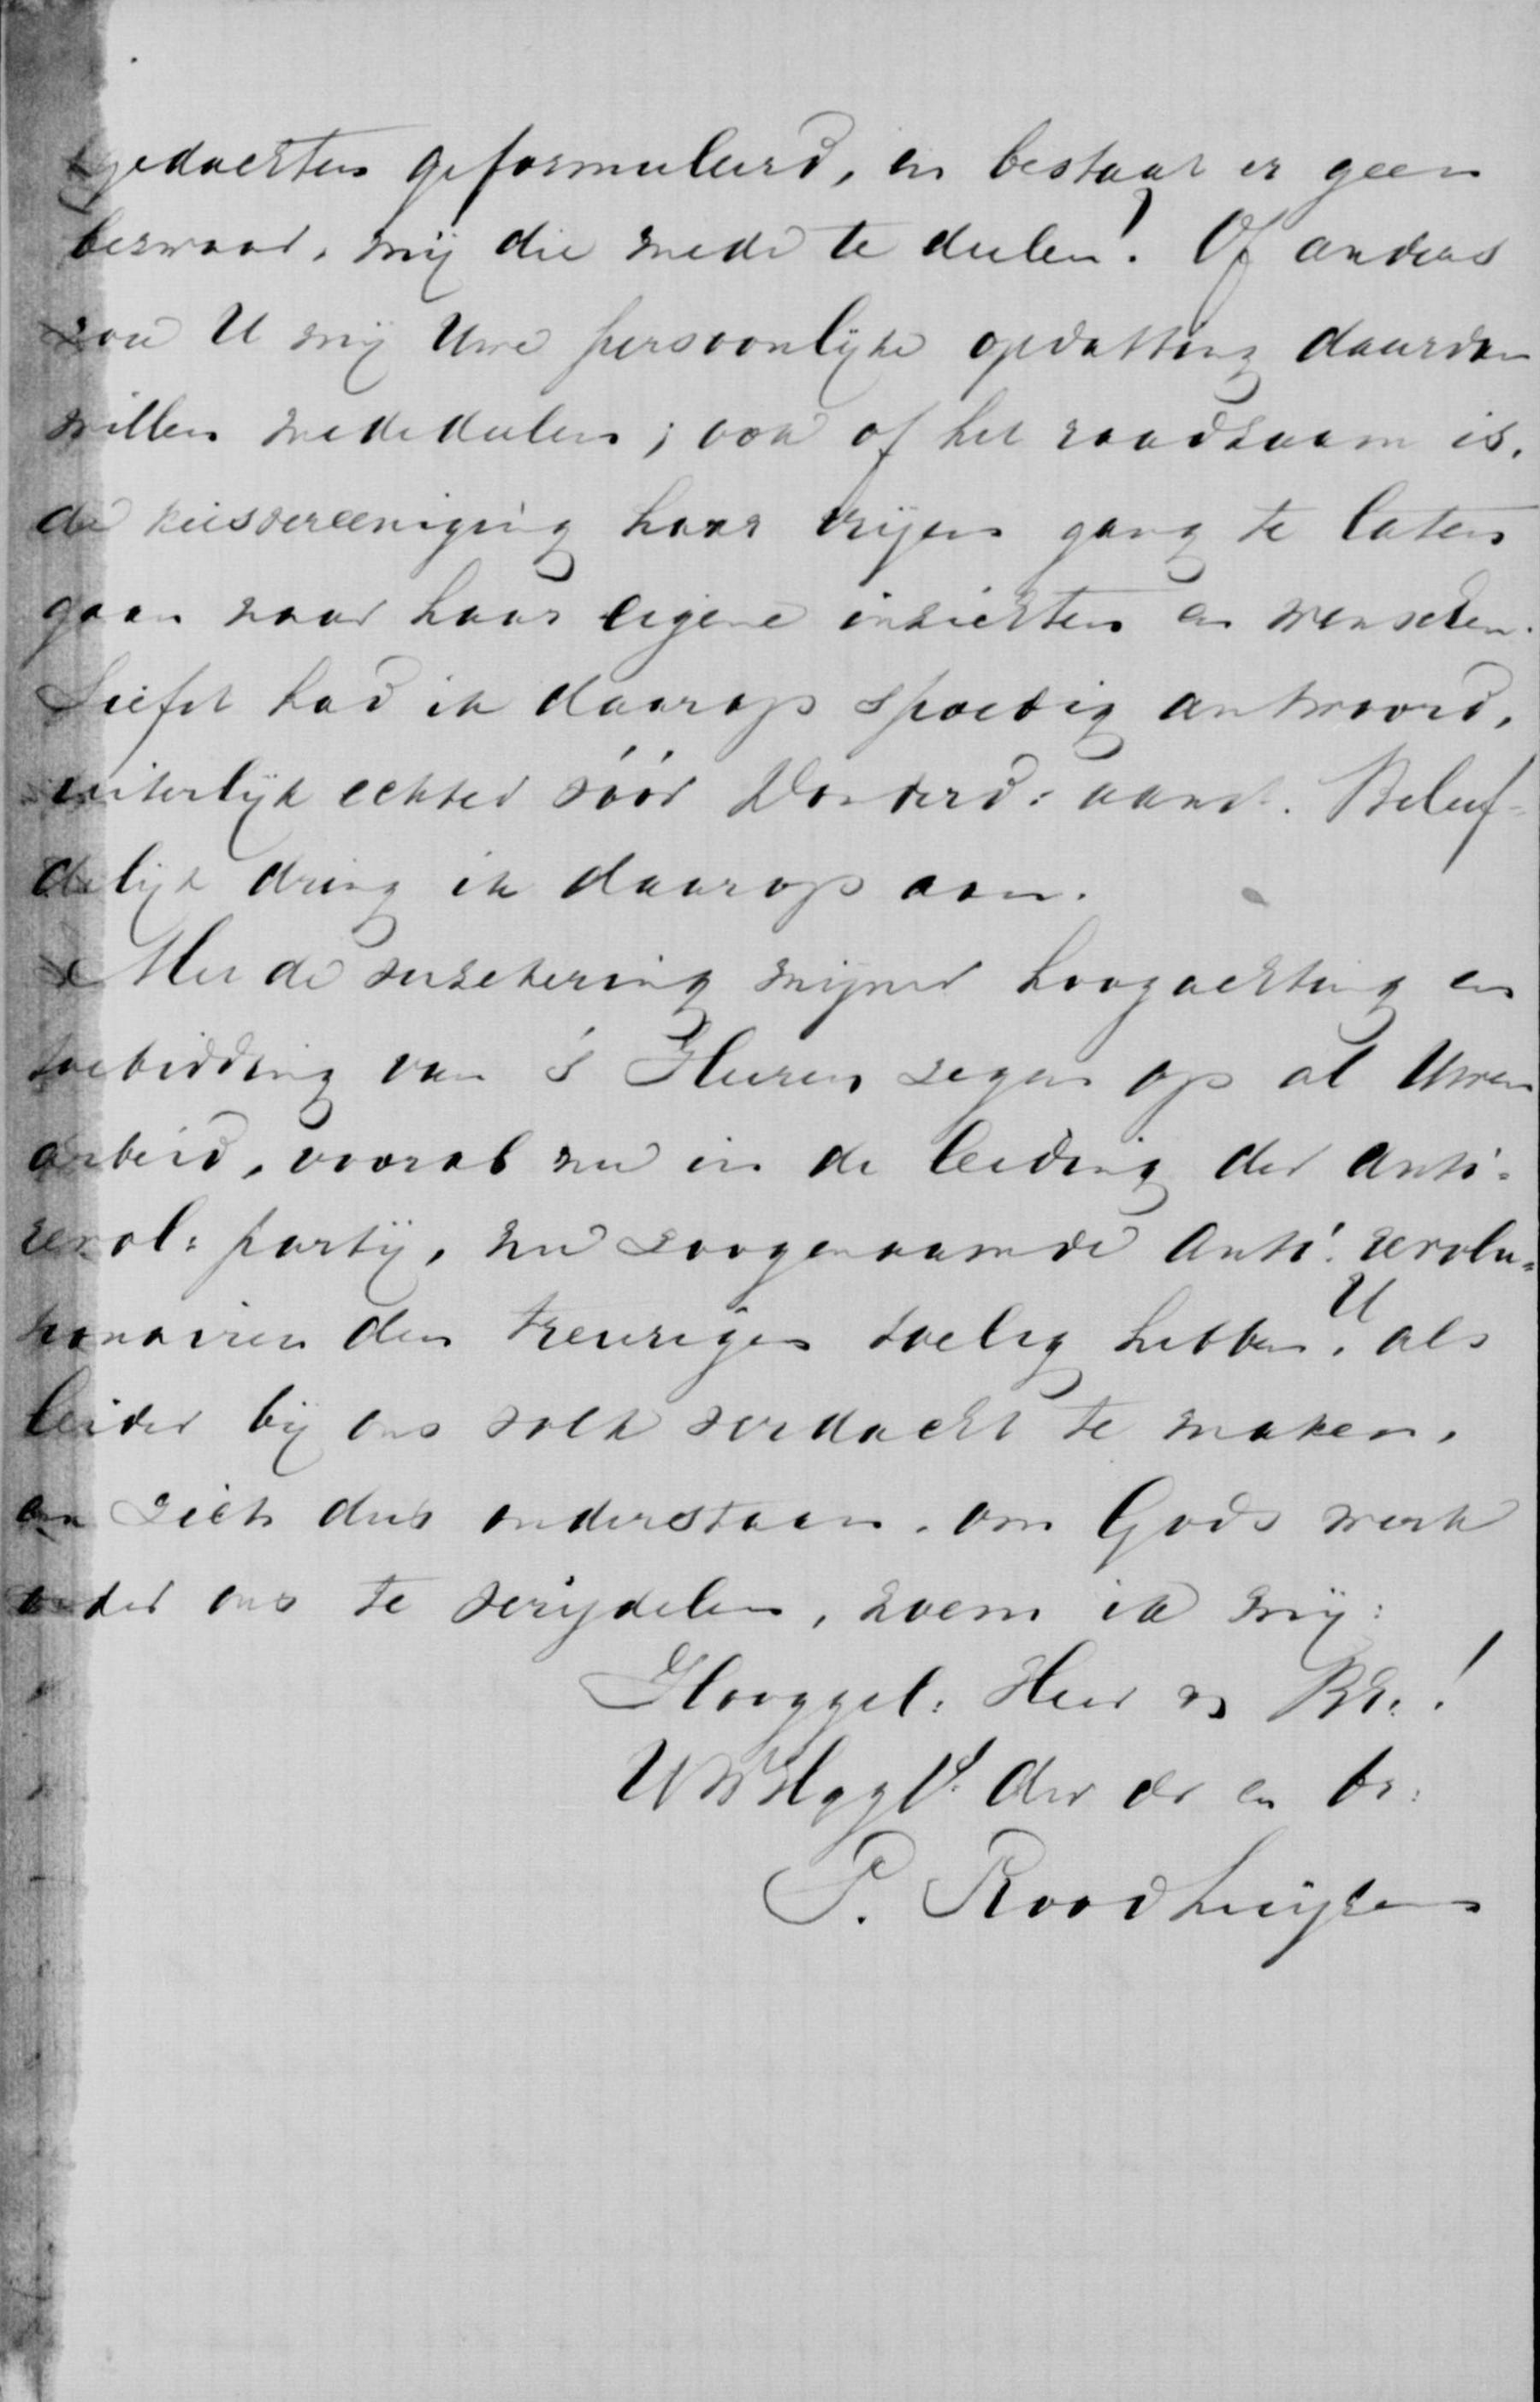 gedachten geformuleerd, en bestaat er geen
bezwaar, mij die mede te deelen? Of anders
zou U mij Uwe persoonlijke opvatting daarvan
willen mededeelen; ook of het raadzaam is,
de kiesvereeniging haar vrijen gang te laten
gaan naar haar eigene inzichten en wenschen.
Liefst had ik daarop spoedig antwoord,
uiterlijk echter vóór Donderd: avond. Beleef-
delijk dring ik daarop aan.
Met de verzekering mijner hoogachting en
toebidding van 's Heeren zegen op al Uwen
arbeid, vooral nu in de leiding der anti-
revol: partij, nu zoogenaamde Anti-revolu-
tionairen den treurigen toeleg hebben, U als
leider bij ons volk verdacht te maken,
en zich dus onderstaan, om Gods werk
onder ons te verijdelen, noem ik mij:
Hooggel: Heer en Br.!
UWHggl. dw dr en br:
P. Roodhuijzen